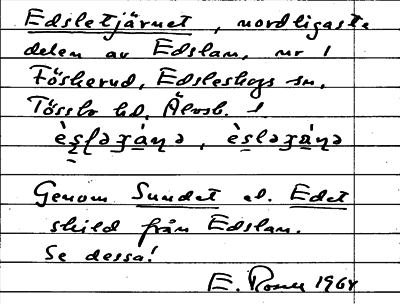 Edsletjärnet, nordligaste
delen av Edslan, nr 1
Föskerud, Edsleskogs sn,
Tössbo hd, Älvsb. l
Genom Sundet el. Edet
skild från Edslan.
Se dessa!
E. 1964